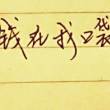 钱在我口袋